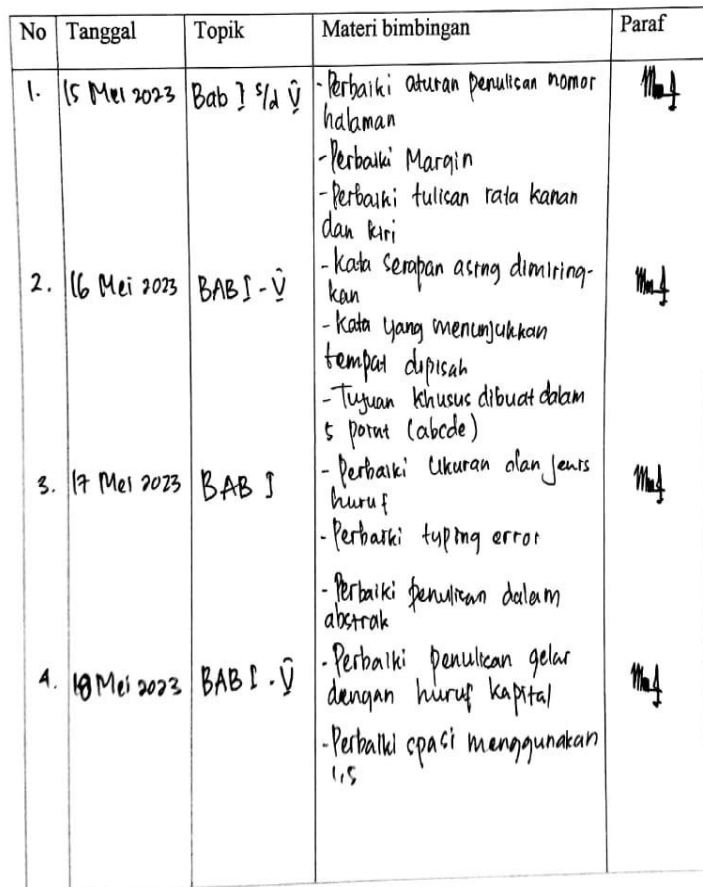 No Tanggal Topik Materi bimbingan Paraf
1. 15 Mei 2023 Bab I s/d V - Perbaiki aturan penulisan nomor
halaman
- Perbaiki Margin
- Perbaiki tulisan rata kanan
dan kiri
2. 16 Mei 2023 BAB I - V - Kata serapan asing dimiring-
kan
- Kata yang menunjukkan
tempat dipisah
- Tujuan khusus dibuat dalam
5 point (abcde)
3. 17 Mei 2023 BAB I - Perbaiki Ukuran dan Jenis
huruf
- Perbaiki typing error
- Perbaiki penulisan dalam
abstrak
4. 18 Mei 2023 BAB I - V - Perbaiki penulisan gelar
dengan huruf kapital
- Perbaiki spasi menggunakan
1,5